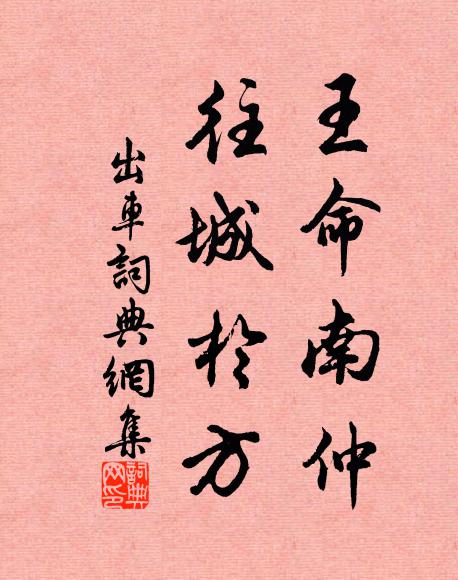 王命南仲
往城於方
出車詞典網集
詞典
网印